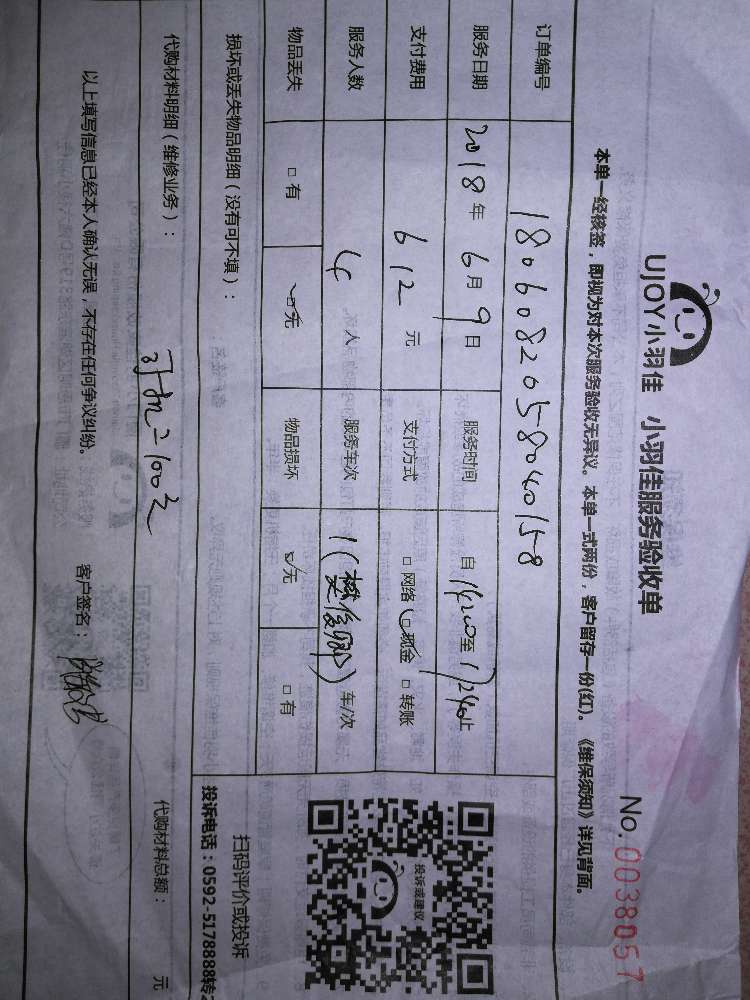 UJOY小羽佳 小羽佳服务验收单
No.0038057
本单一经核签，即视为对本次服务验收无异议。本单一式两份，客户留存一份(红)。《维保须知》详见背面。
订单编号 1806082058040158
服务日期 2018年 6月 9日 服务时间 自 14:20至 17:40止
支付费用 612 元 支付方式 □ 网络 □ 现金 □ 转账
服务人数 4 人 服务车次 1 ( ) 车/次
物品丢失 □ 有 □ 无 物品损坏 □ 无 □ 有
损坏或丢失物品明细（没有可不填）：
代购材料明细（维修业务）： =100元 代购材料总额： 元
以上填写信息已经本人确认无误，不存在任何争议纠纷。 客户签名：
投诉或建议
扫码评价或投诉
投诉电话：0592-5178888转